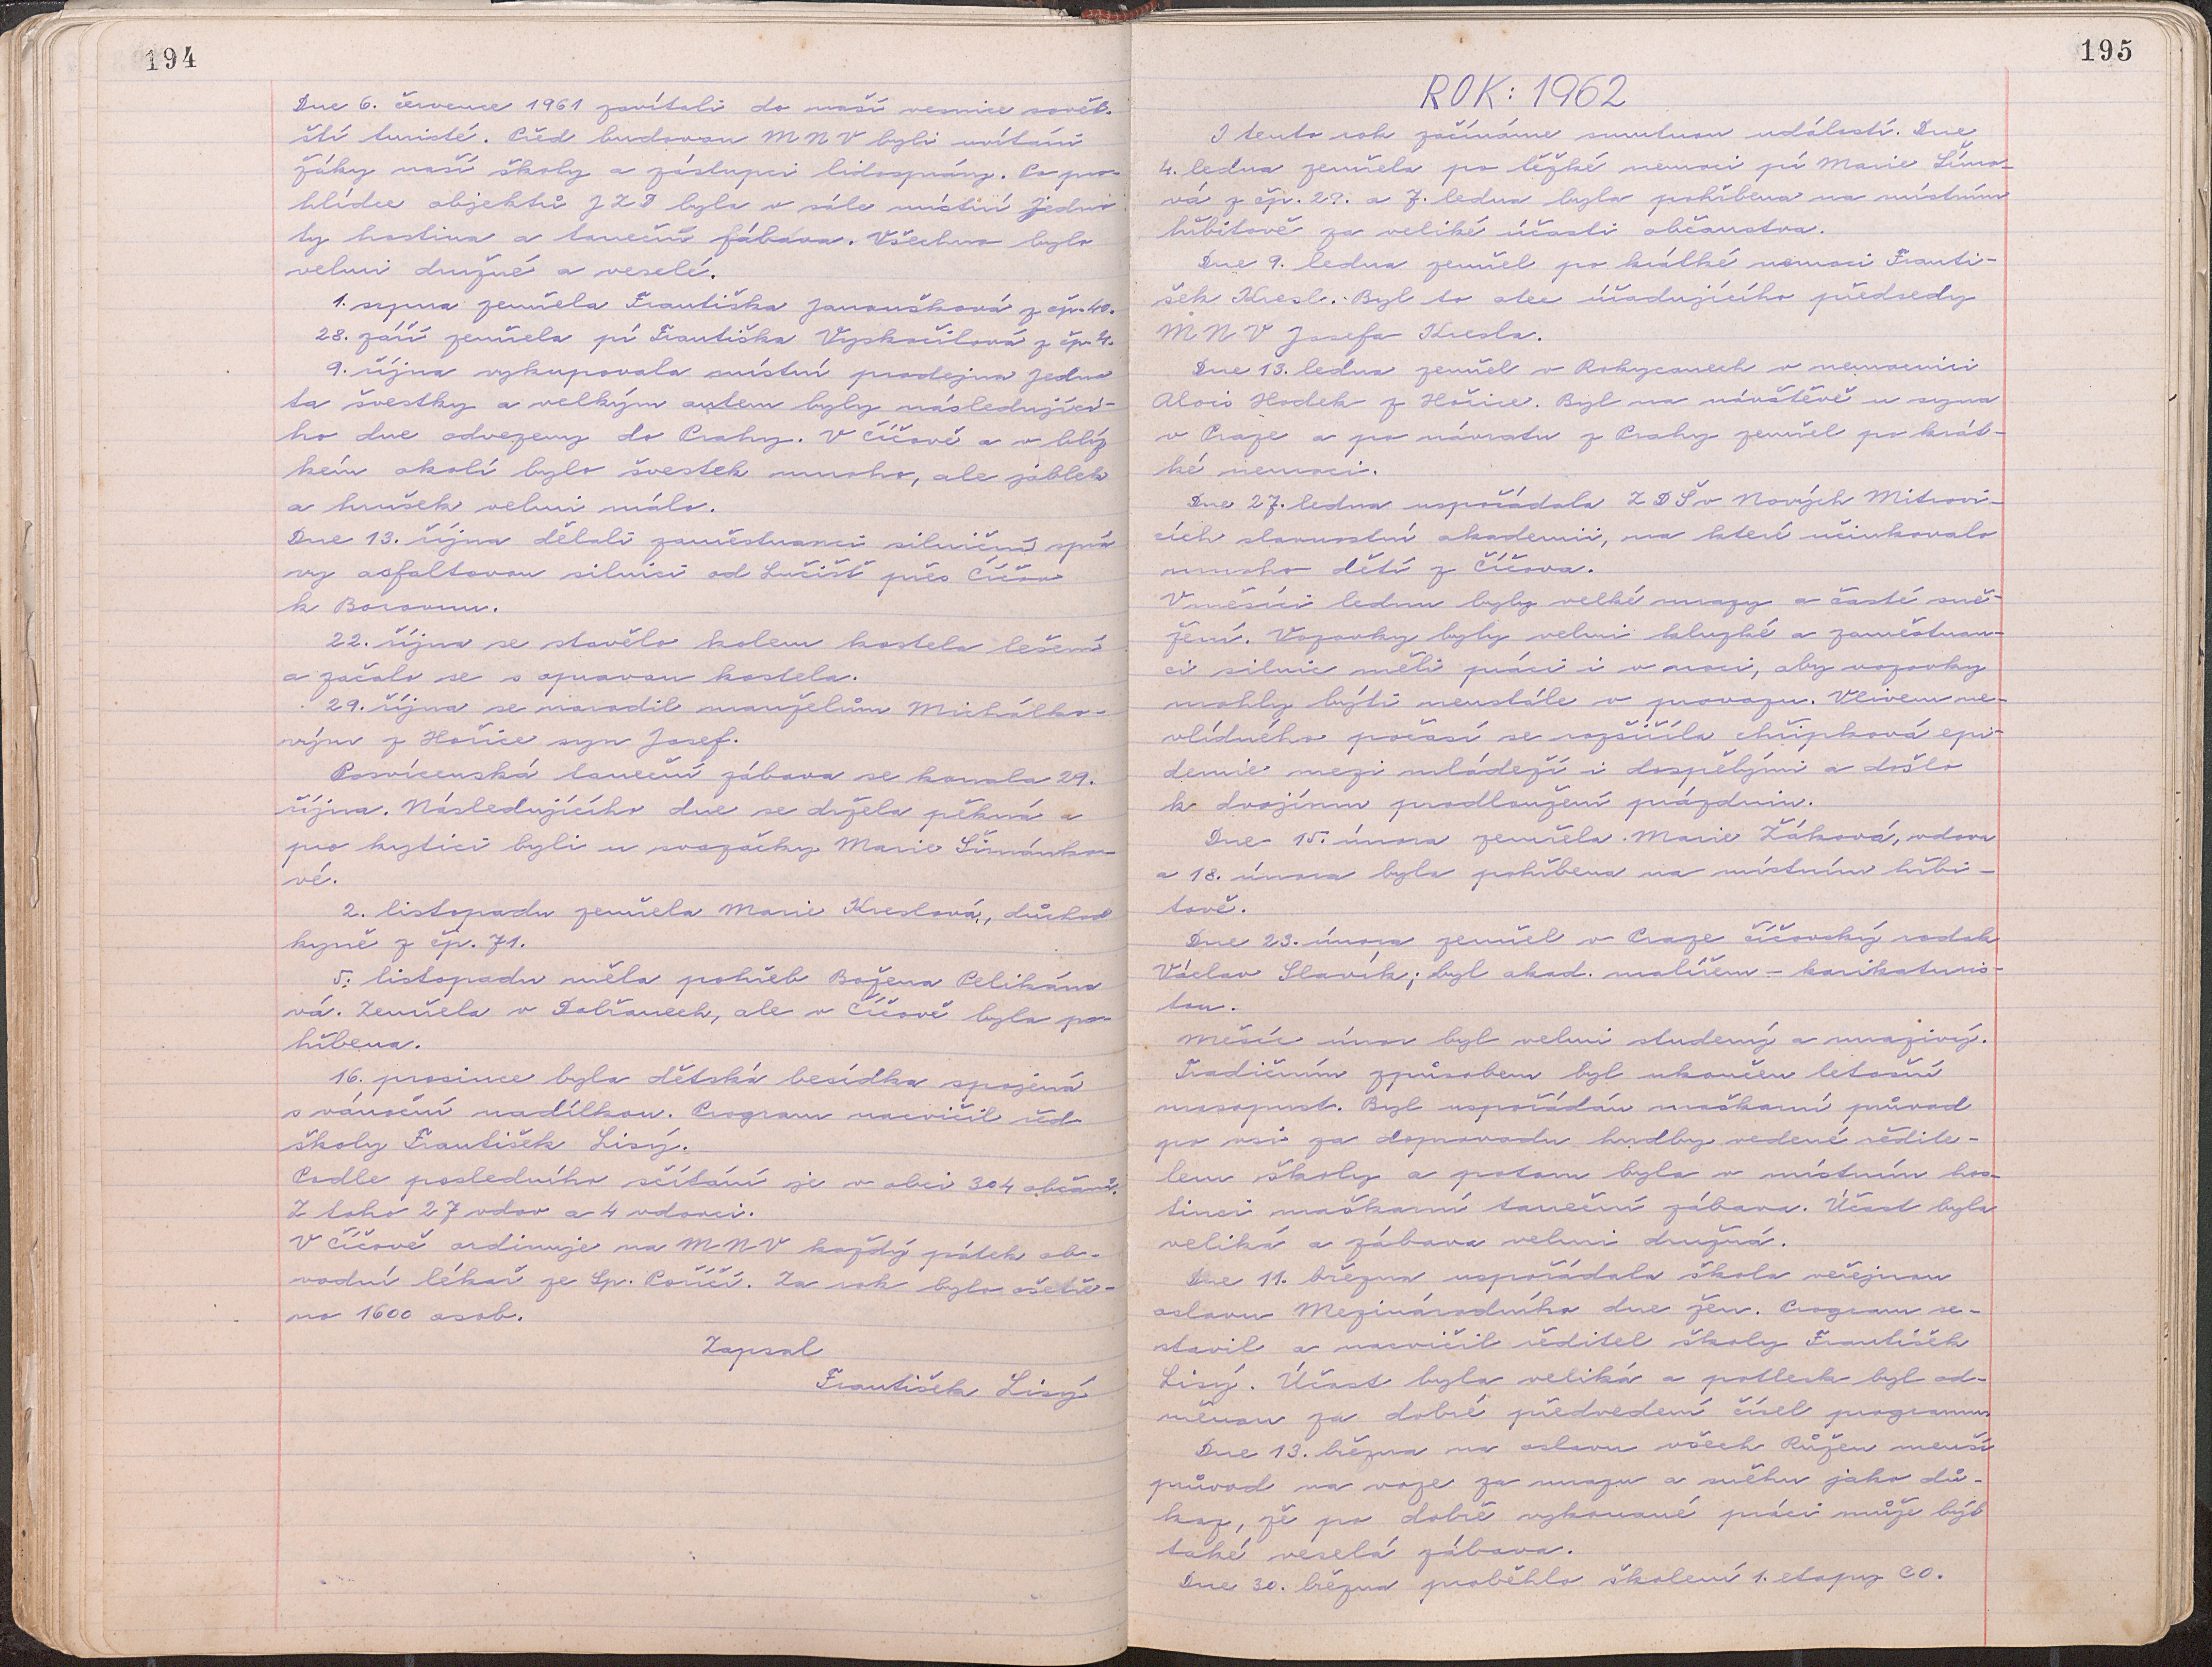 194
Dne 6. července 1961 zavítali do naší vesnice sovět-
ští turisté. Před budovou MNV byli uvítáni
žáky naší školy a zástupci lidosprávy. Po pro-
hlídce objektů JZD byla v sále místní Jedno
ty hostina a taneční zábava. Všechno bylo
velmi družné a veselé.
1. srpna zemřela Františka Janoušková z čp. 40.
28. září zemřela pí Františka Vyskočilová z čp. 4.
9. října vykupovala místní prodejna Jedno
ta švestky a velkým autem byly následující-
ho dne odvezeny do Prahy. V Číčově a v blíz
kém okolí bylo švestek mnoho, ale jablek
a hrušek velmi málo.
Dne 13. října dělali zaměstnanci silniční sprá
vy asfaltovou silnici od Lučišť přes Číčov
k Borovnu.
22. října se stavělo kolem kostela lešení
a začalo se s opravou kostela.
29. října se narodil manželům Michálko-
vým z Hořice syn Josef.
Posvícenská taneční zábava se konala 29.
října. Následujícího dne se držela pěkná a
pro kytici byli u svazačky Marie Šimánko-
vé.
2. listopadu zemřela Marie Kreslová, důchod
kyně z čp. 71.
5. listopadu měla pohřeb Božena Pelikáno
vá. Zemřela v Dobřanech, ale v Číčově byla po-
hřbena.
16. prosince byla dětská besídka spojená
s vánoční nadílkou. Program nacvičil řed.
školy František Lisý.
Podle posledního sčítání je v obci 304 občanů.
Z toho 27 vdov a 4 vdovci.
V Číčově ordinuje na MNV každý pátek ob-
vodní lékař ze Sp. Poříčí. Za rok bylo ošetře-
no 1600 osob.
Zapsal
František Lisý
195
ROK: 1962
I tento rok začínáme smutnou událostí. Dne
4. ledna zemřela po těžké nemoci pí Marie Šímo-
vá z čp. 29. a 7. ledna byla pohřbena na místním
hřbitově za veliké účasti občanstva.
Dne 9. ledna zemřel po krátké nemoci Franti-
šek Kresl. Byl to otec úřadujícího předsedy
MNV Josefa Kresla.
Dne 13. ledna zemřel v Rokycanech v nemocnici
Alois Hodek z Hořice. Byl na návštěvě u syna
v Praze a po návratu z Prahy zemřel po krát-
ké nemoci.
Dne 27. ledna uspořádala ZDŠ v Nových Mitrovi-
cích slavnostní akademii, na které účinkovalo
mnoho dětí z Číčova.
V měsíci lednu byly velké mrazy a časté sně-
žení. Vozovky byly velmi kluzké a zaměstnan-
ci silnic měli práci i v noci, aby vozovky
mohly býti neustále v provozu. Vlivem ne-
vlídného počasí se rozšířila chřipková epi-
demie mezi mládeží i dospělými a došlo
k dvojímu prodloužení prázdnin.
Dne 15. února zemřela Marie Žáková, vdova
a 18. února byla pohřbena na místním hřbi-
tově.
Dne 23. února zemřel v Praze číčovský rodák
Václav Slavík; byl akad. malířem - karikaturis-
tou.
Měsíc únor byl velmi studený a mrazivý.
Tradičním způsobem byl ukončen letošní
masopust. Byl uspořádán maškarní průvod
po vsi za doprovodu hudby vedené ředite-
lem školy a potom byla v místním hos-
tinci maškarní taneční zábava. Účast byla
veliká a zábava velmi družná.
Dne 11. března uspořádala škola veřejnou
oslavu Mezinárodního dne žen. Program se-
stavil a nacvičil ředitel školy František
Lisý. Účast byla veliká a potlesk byl od-
měnou za dobré předvedení čísel programu
Dne 13. března na oslavu všech Růžen menší
průvod na voze za mrazu a sněhu jako dů-
kaz, že po dobře vykonané práci může být
také veselá zábava.
Dne 30. března proběhlo školení 1. etapy CO.